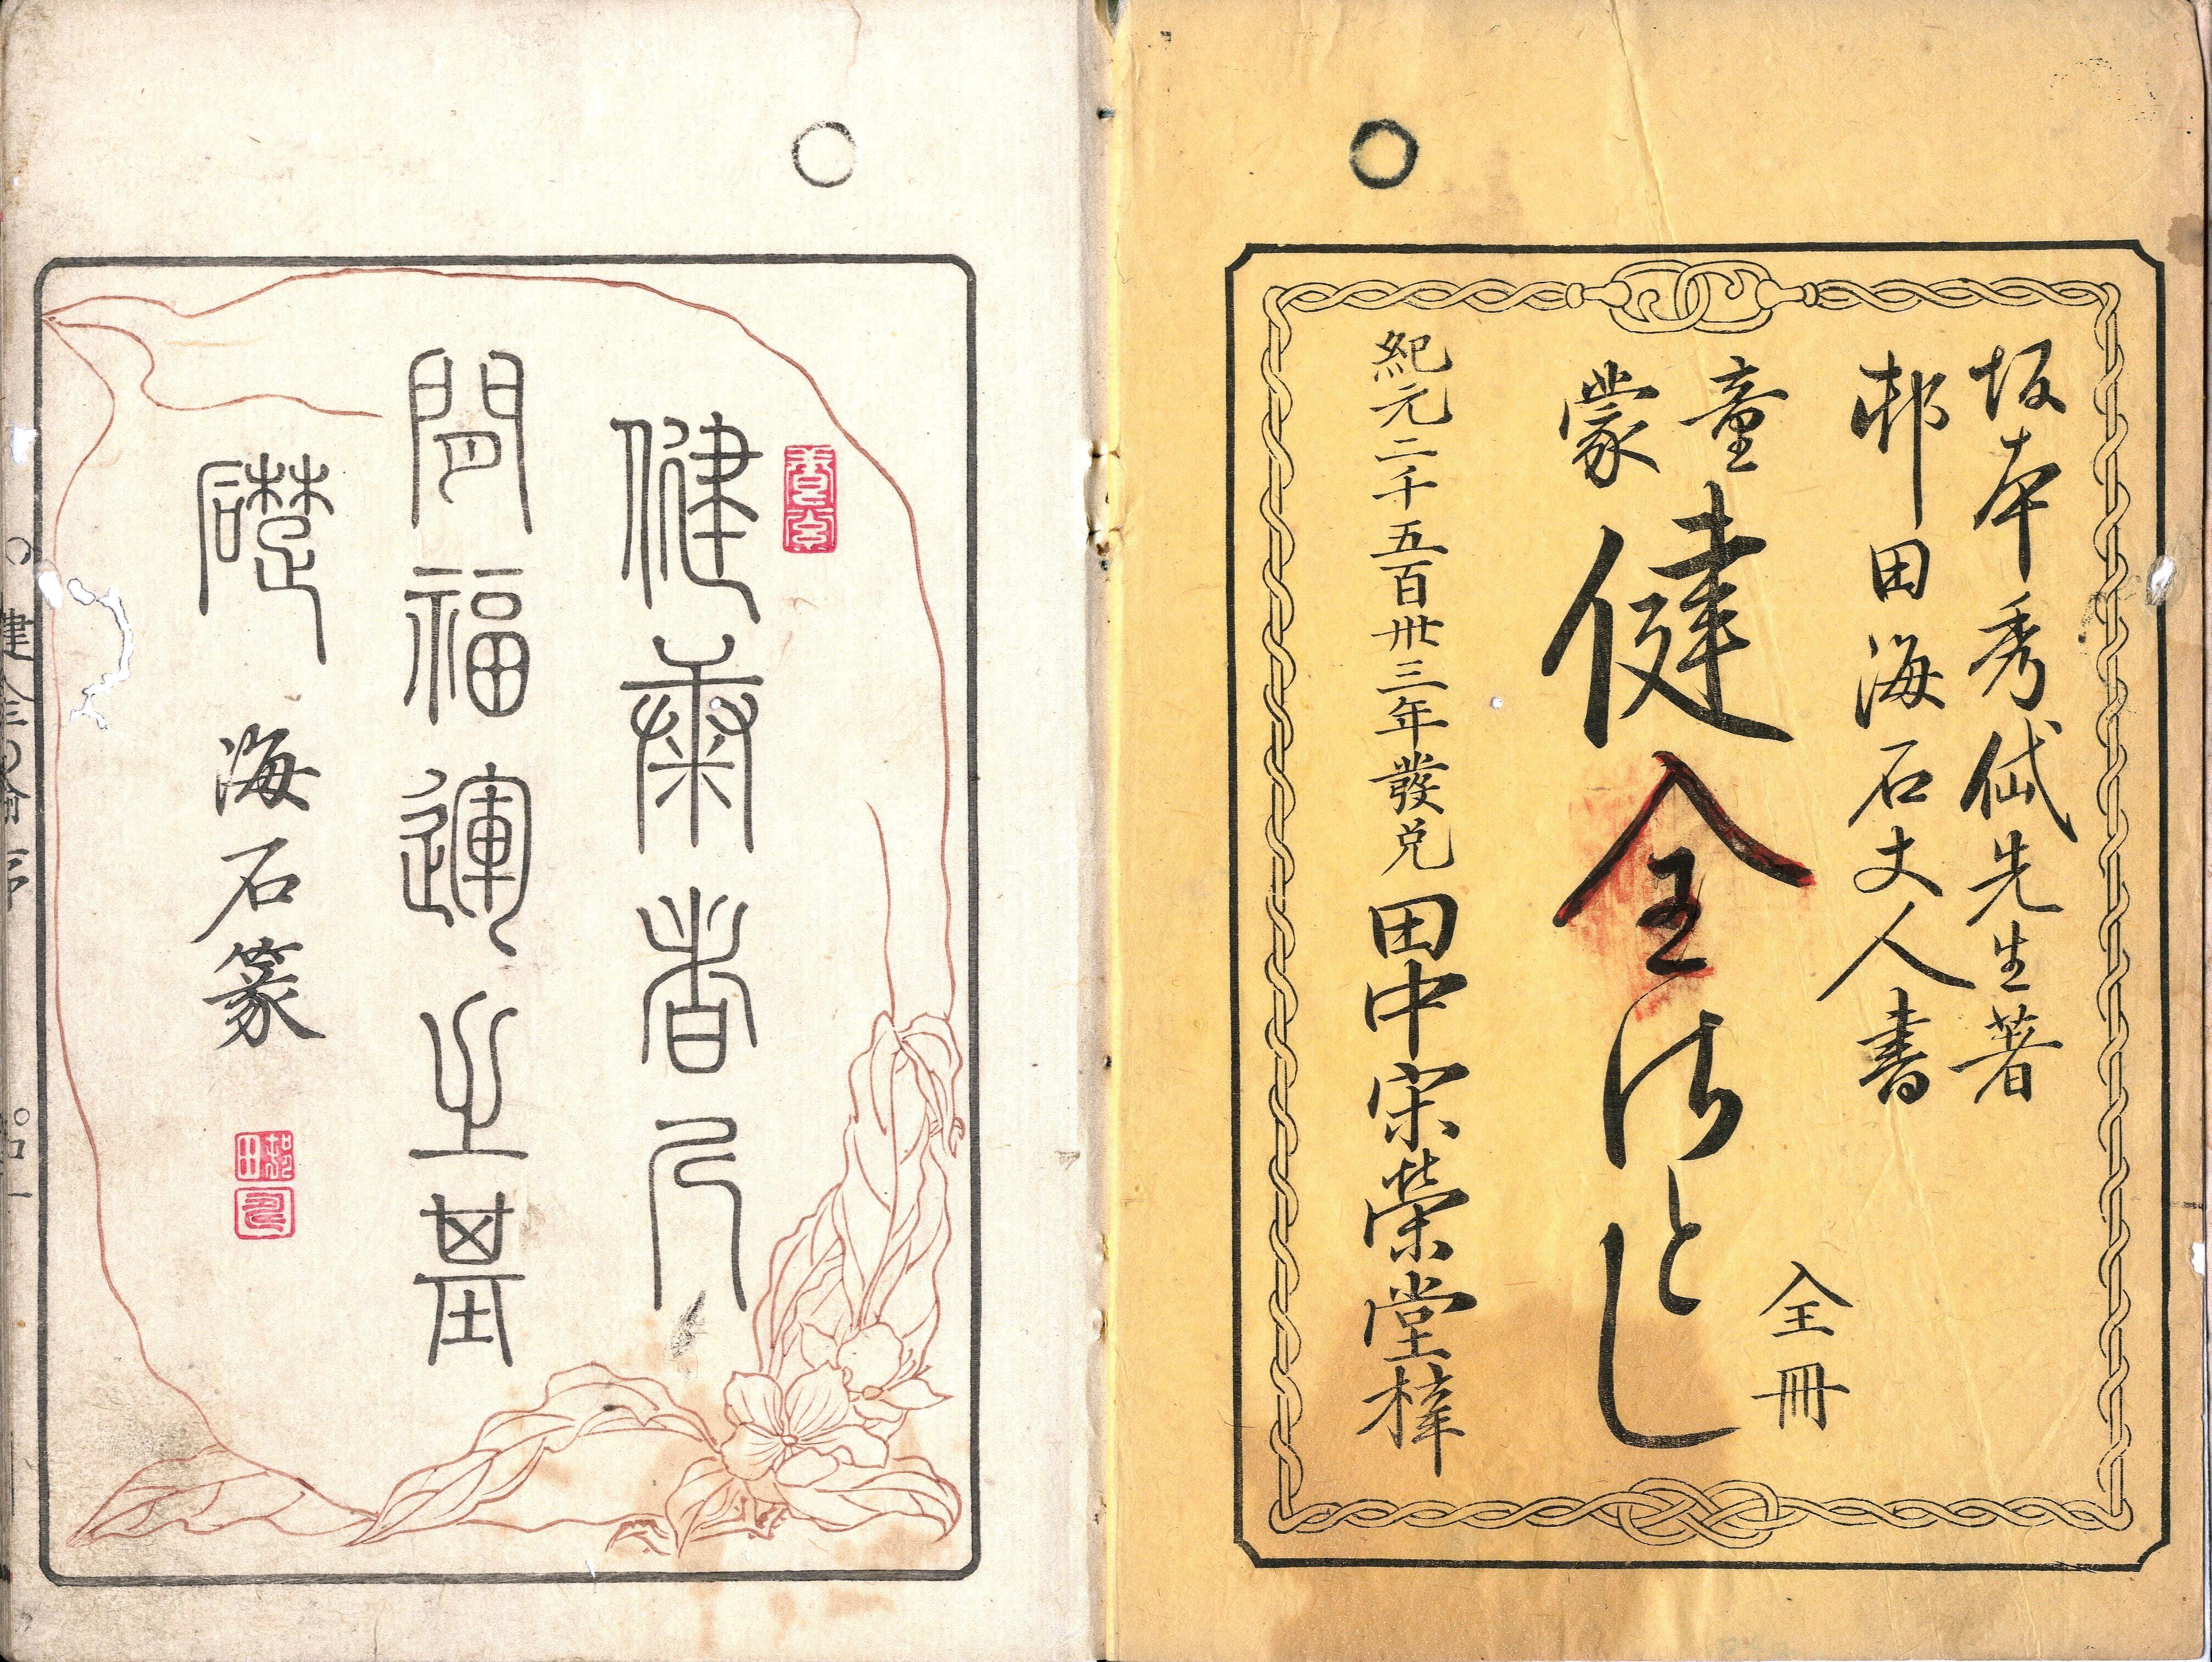 坂本秀岱先生著
邨田海石丈人書
童蒙
健全さとし
全冊
紀元二千五百卅三年發兌
田中宋榮堂梓
健康者人
間福運之基
礎
海石篆